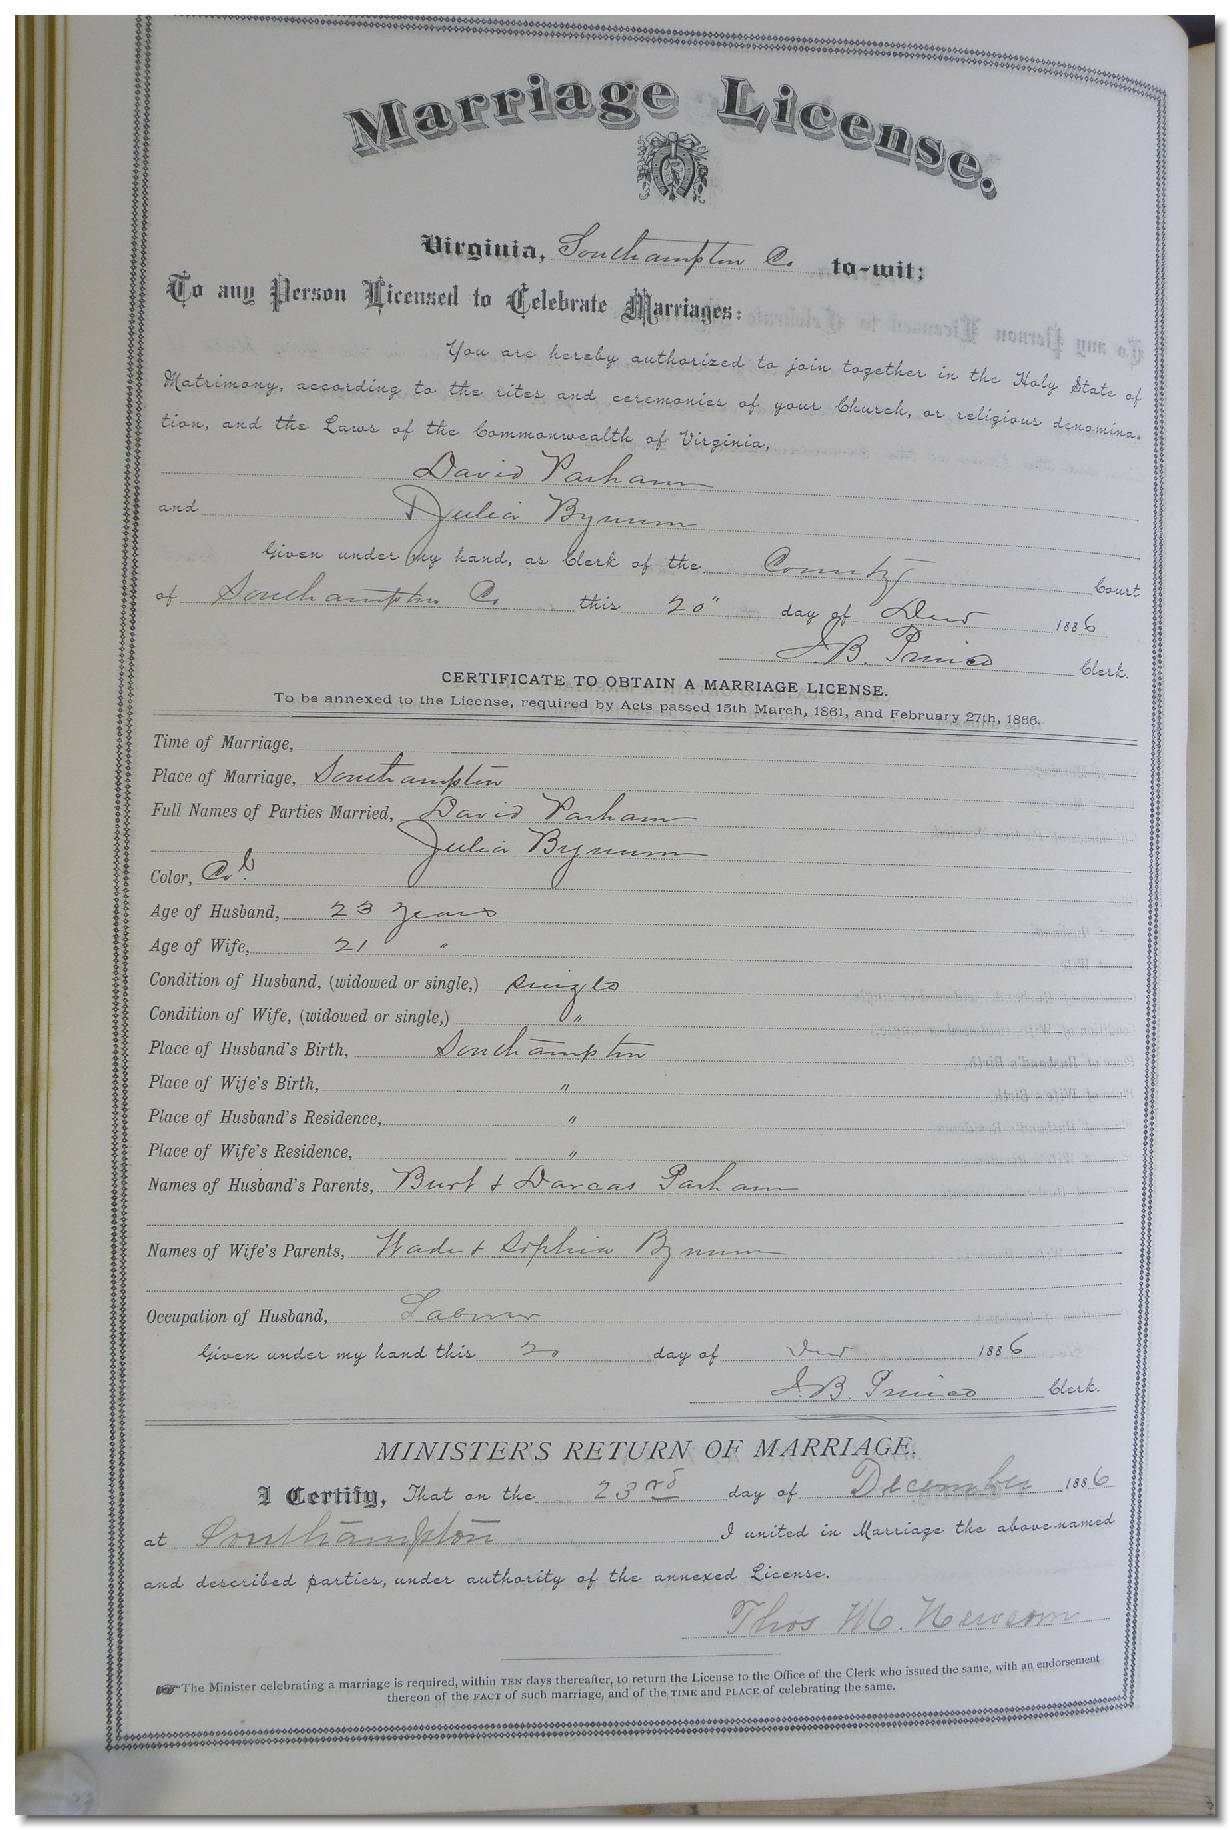 Marriage License.
Virginia, Southampton Co to-wit:
To any Person Licensed to Celebrate Marriages:
You are hereby authorized to join together in the Holy State of
Matrimony, according to the rites and ceremonies of your Church, or religious denomina-
tion, and the Laws of the Commonwealth of Virginia,
David Parham
and & Julia Bynum
Given under my hand, as Clerk of the County Court
of Southampton Co this 20" day of Decr 1886
J. B. Prince Clerk.
CERTIFICATE TO OBTAIN A MARRIAGE LICENSE.
To be annexed to the License, required by Acts passed 15th March, 1861, and February 27th, 1866.
Time of Marriage,
Place of Marriage, Southampton
Full Names of Parties Married, David Parham
Julia Bynum
Color, Cold.
Age of Husband, 23 years
Age of Wife, 21 "
Condition of Husband, (widowed or single,) single
Condition of Wife, (widowed or single,) "
Place of Husband's Birth, Southampton
Place of Wife's Birth, "
Place of Husband's Residence, "
Place of Wife's Residence, "
Names of Husband's Parents, Burt & Darcas Parham
Names of Wife's Parents, Wade & Sophia Bynum
Occupation of Husband, Laborer
Given under my hand this 20 day of Decr 1886
J. B. Prince Clerk.
MINISTER'S RETURN OF MARRIAGE.
I Certify, That on the 23rd day of December 1886
at Southampton I united in Marriage the above-named
and described parties, under authority of the annexed License.
Thos M. Newsom
The Minister celebrating a marriage is required, within TEN days thereafter, to return the License to the Office of the Clerk who issued the same, with an endorsement
thereon of the FACT of such marriage, and of the TIME and PLACE of celebrating the same.